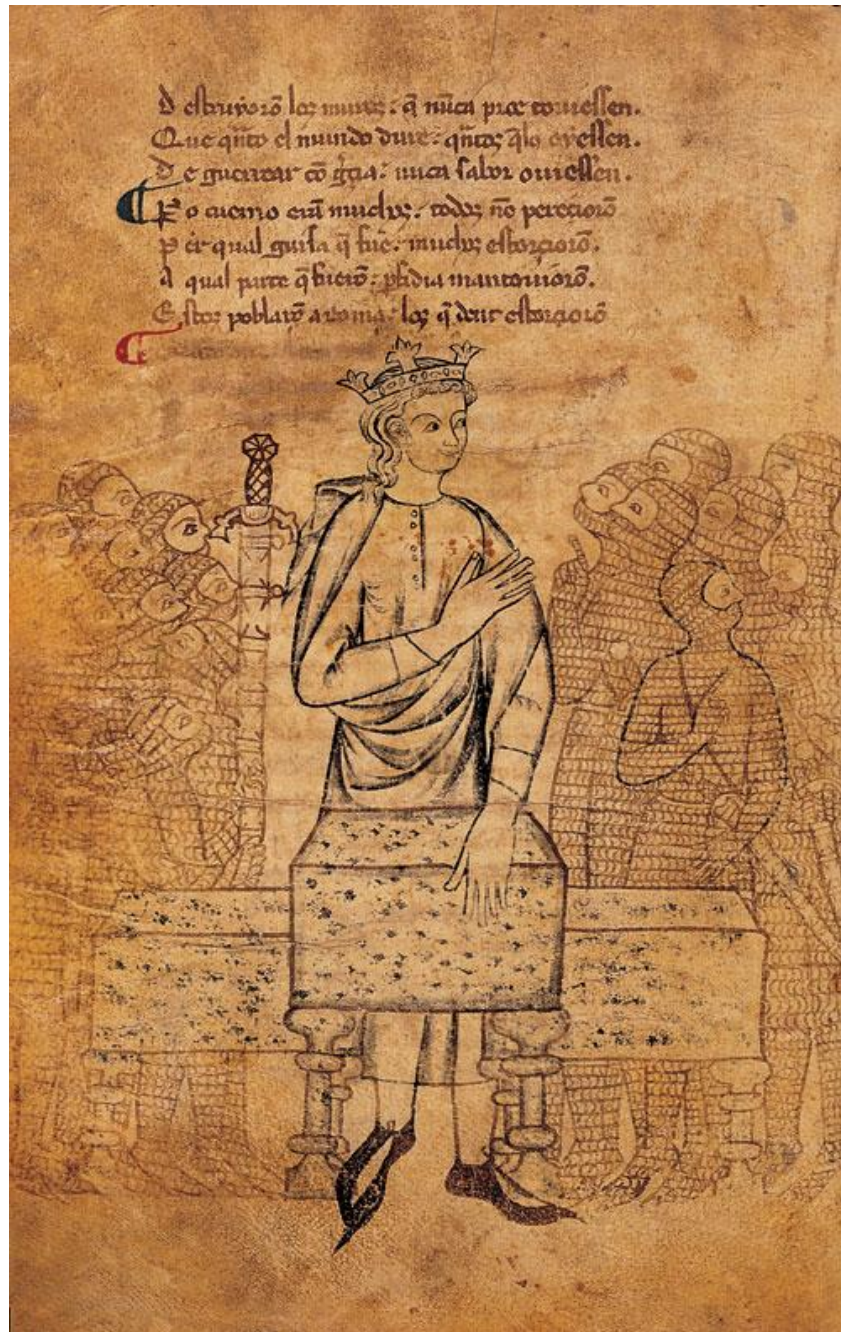 D estruyorō los muros: q̄ nūca proe touiessen.
Que qn̄to el mundo dure: qn̄tos q̄lo oyessen.
D e guerrear cō gr̄cia: nuca sabor ouiessen.
P o cuemo erā muchos: todos nō pereçiorō
P er qual guisa q̄ fue: muchos estorçiorō.
A qual parte q̄ fuerō: pfidia mantouiorō.
E stos poblarō a roma: los q̄ dent estorçiorō